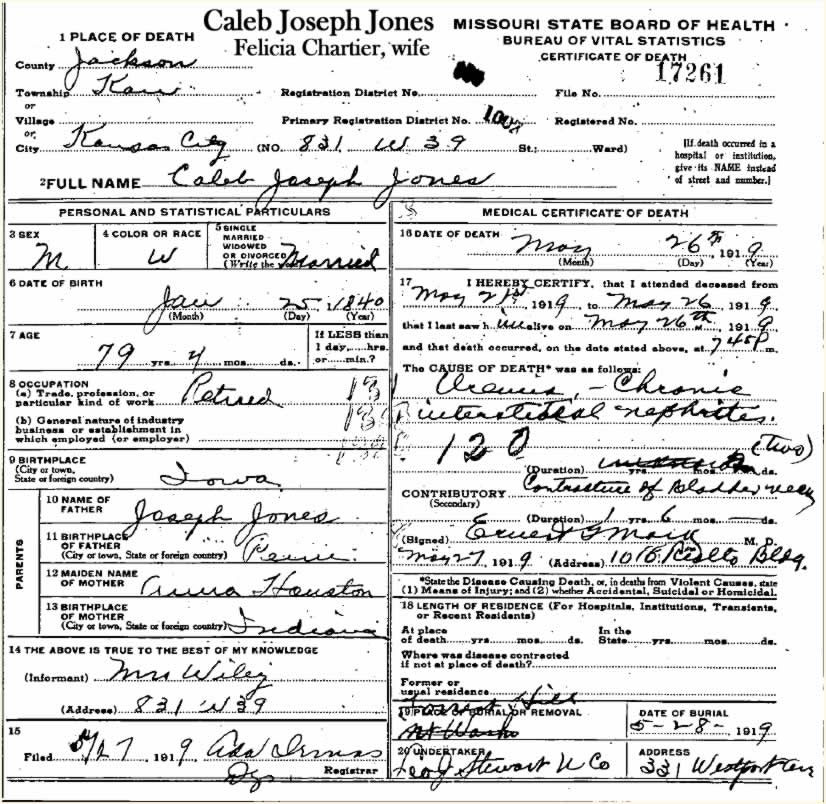 Caleb Joseph Jones
Felicia Chartier, wife
MISSOURI STATE BOARD OF HEALTH
BUREAU OF VITAL STATISTICS
CERTIFICATE OF DEATH
1 PLACE OF DEATH
County Jackson
Township Kaw
or
Village
or
City Kansas City (NO. 831 W 39 St.; Ward)
Registration District No.
File No. 17261
Primary Registration District No. 1002
Registered No.
[If death occurred in a
hospital or institution,
give its NAME instead
of street and number.]
2 FULL NAME Caleb Joseph Jones
PERSONAL AND STATISTICAL PARTICULARS
3 SEX M
4 COLOR OR RACE W
5 SINGLE
MARRIED
WIDOWED
OR DIVORCED
(Write the word) Married
6 DATE OF BIRTH
Jan 25 1840
(Month) (Day) (Year)
7 AGE
79 yrs. 4 mos. ds.
If LESS than
1 day,.....hrs.
or......min.?
8 OCCUPATION
(a) Trade, profession, or
particular kind of work Retired
(b) General nature of industry
business or establishment in
which employed (or employer)
9 BIRTHPLACE
(City or town,
State or foreign country) Iowa
PARENTS
10 NAME OF
FATHER Joseph Jones
11 BIRTHPLACE
OF FATHER
(City or town, State or foreign country) Penn.
12 MAIDEN NAME
OF MOTHER Houston
13 BIRTHPLACE
OF MOTHER
(City or town, State or foreign country) Indiana
14 THE ABOVE IS TRUE TO THE BEST OF MY KNOWLEDGE
(Informant) Mrs Wiley
(Address) 831 W 39
15
Filed 5/27 1919
Registrar
MEDICAL CERTIFICATE OF DEATH
16 DATE OF DEATH May 26th, 1919
(Month) (Day) (Year)
17 I HEREBY CERTIFY, that I attended deceased from
May 21st 1919 to May 26 1919
that I last saw him alive on May 26th, 1919
and that death occurred, on the date stated above, at 745P m.
The CAUSE OF DEATH* was as follows:
Uremia, - Chronic
interstitial nephritis.
120
(two)
(Duration) yrs. mos. ds.
CONTRIBUTORY Contracture of Bladder neck
(Secondary)
(Duration) 1 yrs. 6 mos. ds.
(Signed) Ernest G Mark M. D.
May 27, 1919 (Address) 1016 Rialto Bldg.
*State the Disease Causing Death, or, in deaths from Violent Causes, state
(1) Means of Injury; and (2) whether Accidental, Suicidal or Homicidal.
18 LENGTH OF RESIDENCE (For Hospitals, Institutions, Transients,
or Recent Residents)
At place
of death......yrs......mos......ds.
In the
State......yrs......mos......ds.
Where was disease contracted
if not at place of death?
Former or
usual residence
19 PLACE OF BURIAL OR REMOVAL
Forest Hill
Mt Wash
DATE OF BURIAL
5-28-1919
20 UNDERTAKER
Geo J Stewart U Co
ADDRESS
331 Westport Ave